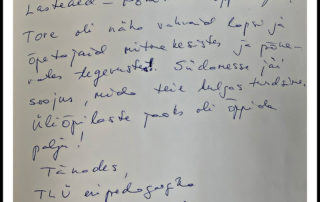 Tore oli näha vahvaid lapsi ja
õpetajaid mitmekesistes ja põne-
vates tegevustes. Südamesse jäi
soojus, mida teie hulgas tundsime.
Üliõpilaste jaoks oli õppida
palju!
Tänades,
TLÜ eripedagoogika